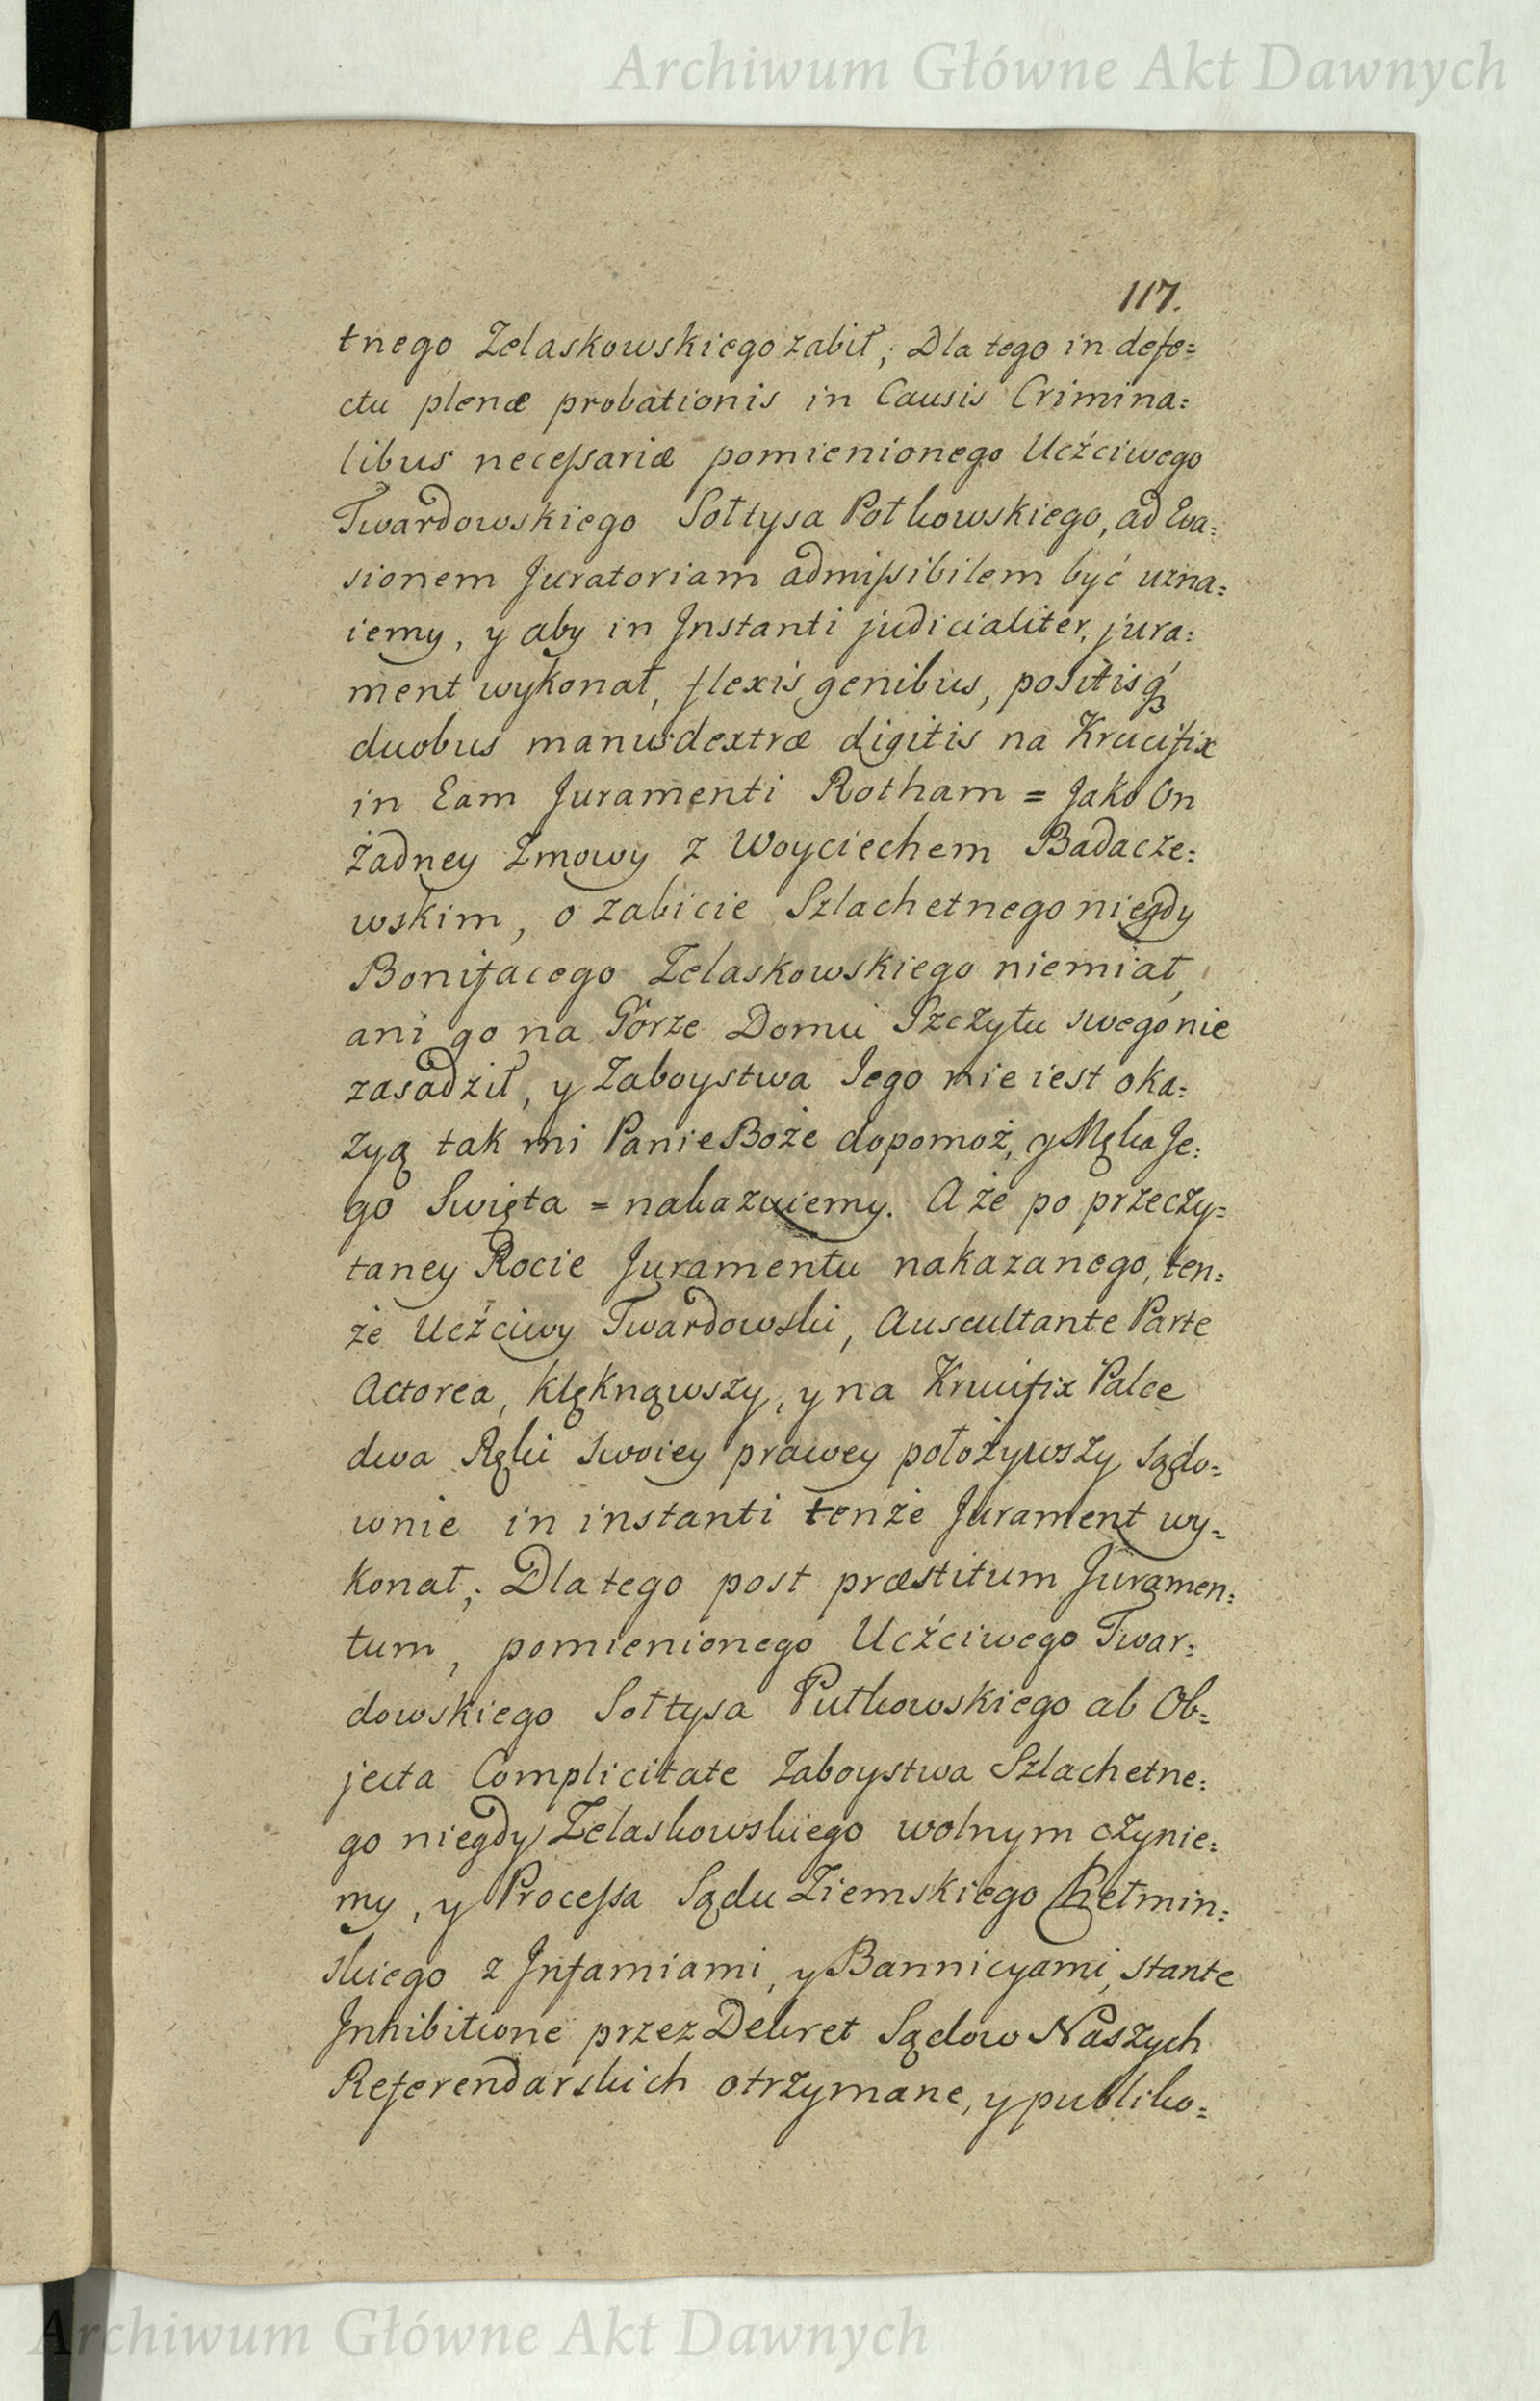 Archiwum Główne Akt Dawnych
117.
tnego Zelaskowskiego zabił; Dla tego in defe=
ctu plenæ probationis in Causis Crimina=
libus neceſsariæ pomienionego Uczciwego
Twardowskiego Sołtysa Potkowskiego, ad Eva=
sionem Juratoriam admiſsibilem być uzna=
iemy, y aby in Instanti judicialiter, jura=
ment wykonał, flexis genibus, positisq́
duobus manus dextræ digitis na Krucifix
in Eam Juramenti Rotham = Jako On
żadney Zmowy z Woyciechem Badacze=
wskim, o zabicie Szlachetnego niegdy
Bonifacego Zelaskowskiego niemiał,
ani go na Górze Domu Szczytu swego nie
zasadził, y Zaboystwa Jego nie iest oka=
zyą tak mi Panie Boże dopomoż, y Męka Je=
go Swięta = nakazuiemy. A że po przeczy=
taney Rocie Juramentu nakazanego, ten=
że Uczciwy Twardowski, Auscultante Parte
Actorea, klęknąwszy, y na Krucifix Palce
dwa Ręki Swoiey prawey położywszy Sądo=
wnie in instanti tenże Jurament wy=
konał; Dla tego post præstitum Juramen=
tum, pomienionego Uczciwego Twar=
dowskiego Sołtysa Putkowskiego ab Ob=
jecta Complicitate Zaboystwa Szlachetne=
go niegdy Zelaskowskiego wolnym czynie=
my, y Proceſsa Sądu Ziemskiego Chełmin=
skiego z Infamiami, y Bannicyami, stante
Inhibitione przez Dekret Sądow Naszych
Referendarskich otrzymane, y publiko=
Archiwum Główne Akt Dawnych